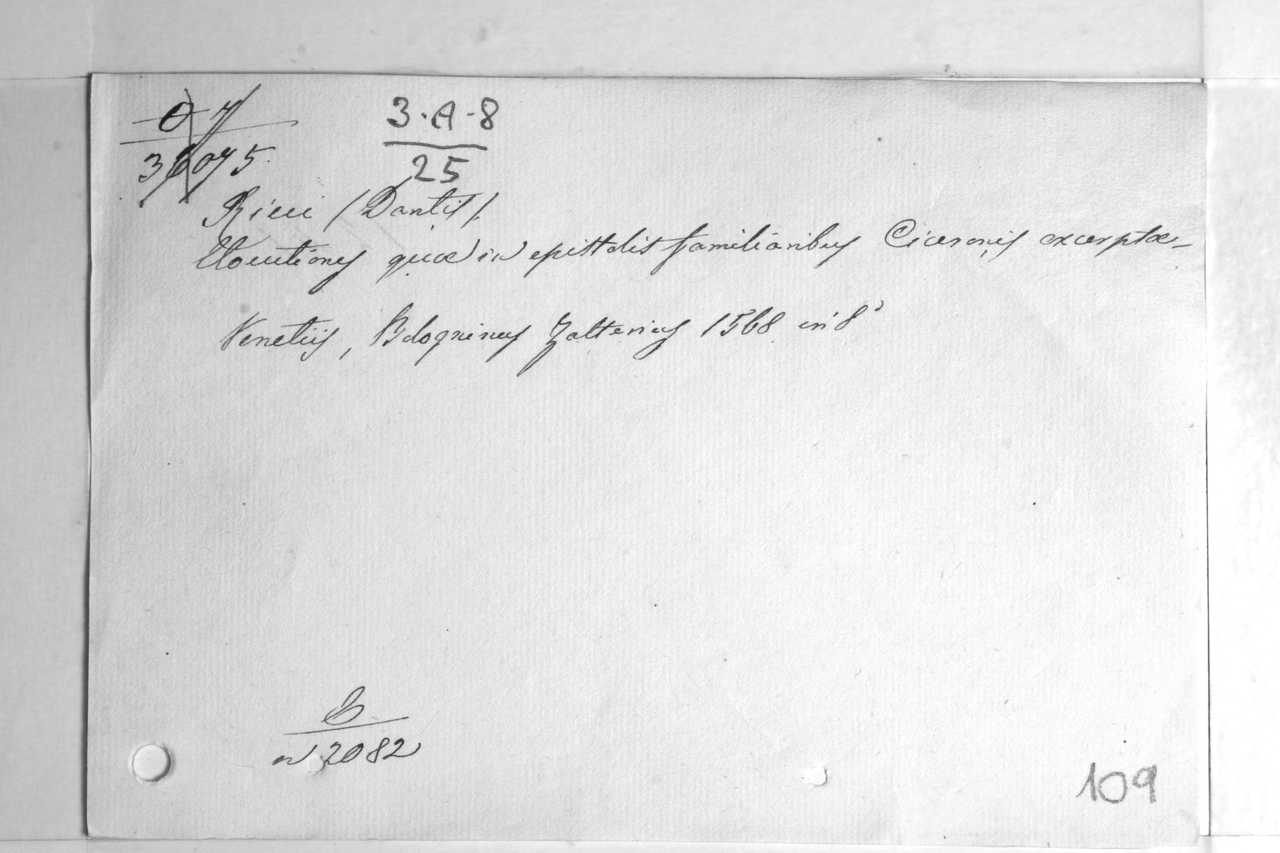 O 7 3·A-8
36075 25
Ricci (Dantis).
Elocutiones quæ in epistolis familiaribus Ciceronis excerptæ –
Venetiis, Bologninus Zalterius 1568 in 8º
B
n 2082
109